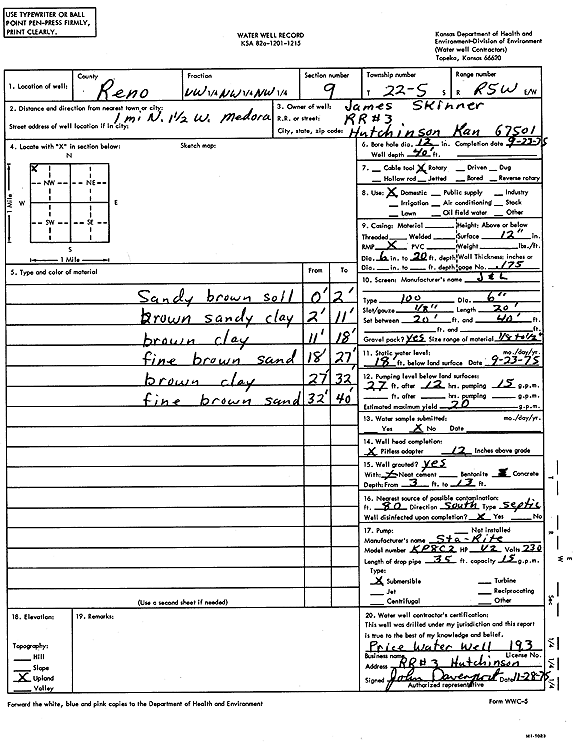 USE TYPEWRITER OR BALL
POINT PEN-PRESS FIRMLY,
PRINT CLEARLY.
WATER WELL RECORD
KSA 82a-1201-1215
Kansas Department of Health and
Environment-Division of Environment
(Water well Contractors)
Topeka, Kansas 66620
1. Location of well: County Reno Fraction NW 1/4 NW 1/4 NW 1/4 Section number 9 Township number T 22-5 S Range number R R5W E/W
2. Distance and direction from nearest town or city: 1 mi N. 1 1/2 W. Medora
Street address of well location if in city:
3. Owner of well: James Skinner
R.R. or street: RR#3
City, state, zip code: Hutchinson Kan 67501
4. Locate with "X" in section below: Sketch map:
N
X
NW NE
W E
1 Mile
SW SE
S
1 Mile
5. Type and color of material From To
Sandy brown soil 0' 2'
brown sandy clay 2' 11'
brown clay 11' 18'
fine brown sand 18' 27'
brown clay 27 32'
fine brown sand 32' 40'
(Use a second sheet if needed)
6. Bore hole dia. 12 in. Completion date 9-23-75
Well depth 40' ft.
7. Cable tool X Rotary Driven Dug
Hollow rod Jetted Bored Reverse rotary
8. Use: X Domestic Public supply Industry
Irrigation Air conditioning Stock
Lawn Oil field water Other
9. Casing: Material Height: Above or below
Threaded Welded Surface 12" in.
RMP X PVC Weight lbs./ft.
Dia. 6 in. to 20 ft. depth Wall Thickness: inches or
Dia. in. to ft. depth gage No. .175
10. Screen: Manufacturer's name J & L
Type 100 Dia. 6"
Slot/gauze 1/8" Length 20'
Set between 20' ft. and 40' ft.
ft. and ft.
Gravel pack? yes Size range of material 1/8 to 1/2"
11. Static water level: mo./day/yr.
18' ft. below land surface Date 9-23-75
12. Pumping level below land surfaces:
27 ft. after 12 hrs. pumping 15 g.p.m.
ft. after hrs. pumping g.p.m.
Estimated maximum yield 20 g.p.m.
13. Water sample submitted: mo./day/yr.
Yes X No Date
14. Well head completion:
X Pitless adapter 12 Inches above grade
15. Well grouted? yes
With: Neat cement Bentonite X Concrete
Depth: From 3 ft. to 13 ft.
16. Nearest source of possible contamination:
ft. 80 Direction South Type septic
Well disinfected upon completion? X Yes No
17. Pump: Not installed
Manufacturer's name Sta-Rite
Model number KP8C2 HP 1/2 Volts 230
Length of drop pipe 35 ft. capacity 15 g.p.m.
Type:
X Submersible Turbine
Jet Reciprocating
Centrifugal Other
18. Elevation:
Topography:
Hill
Slope
X Upland
Valley
19. Remarks:
20. Water well contractor's certification:
This well was drilled under my jurisdiction and this report
is true to the best of my knowledge and belief.
Price Water Well 193
Business name License No.
Address RR#3 Hutchinson
Signed John Davenport Date 11-28-75
Authorized representative
T
R
W
E
Sec
1/4
1/4
1/4
Forward the white, blue and pink copies to the Department of Health and Environment
Form WWC-5